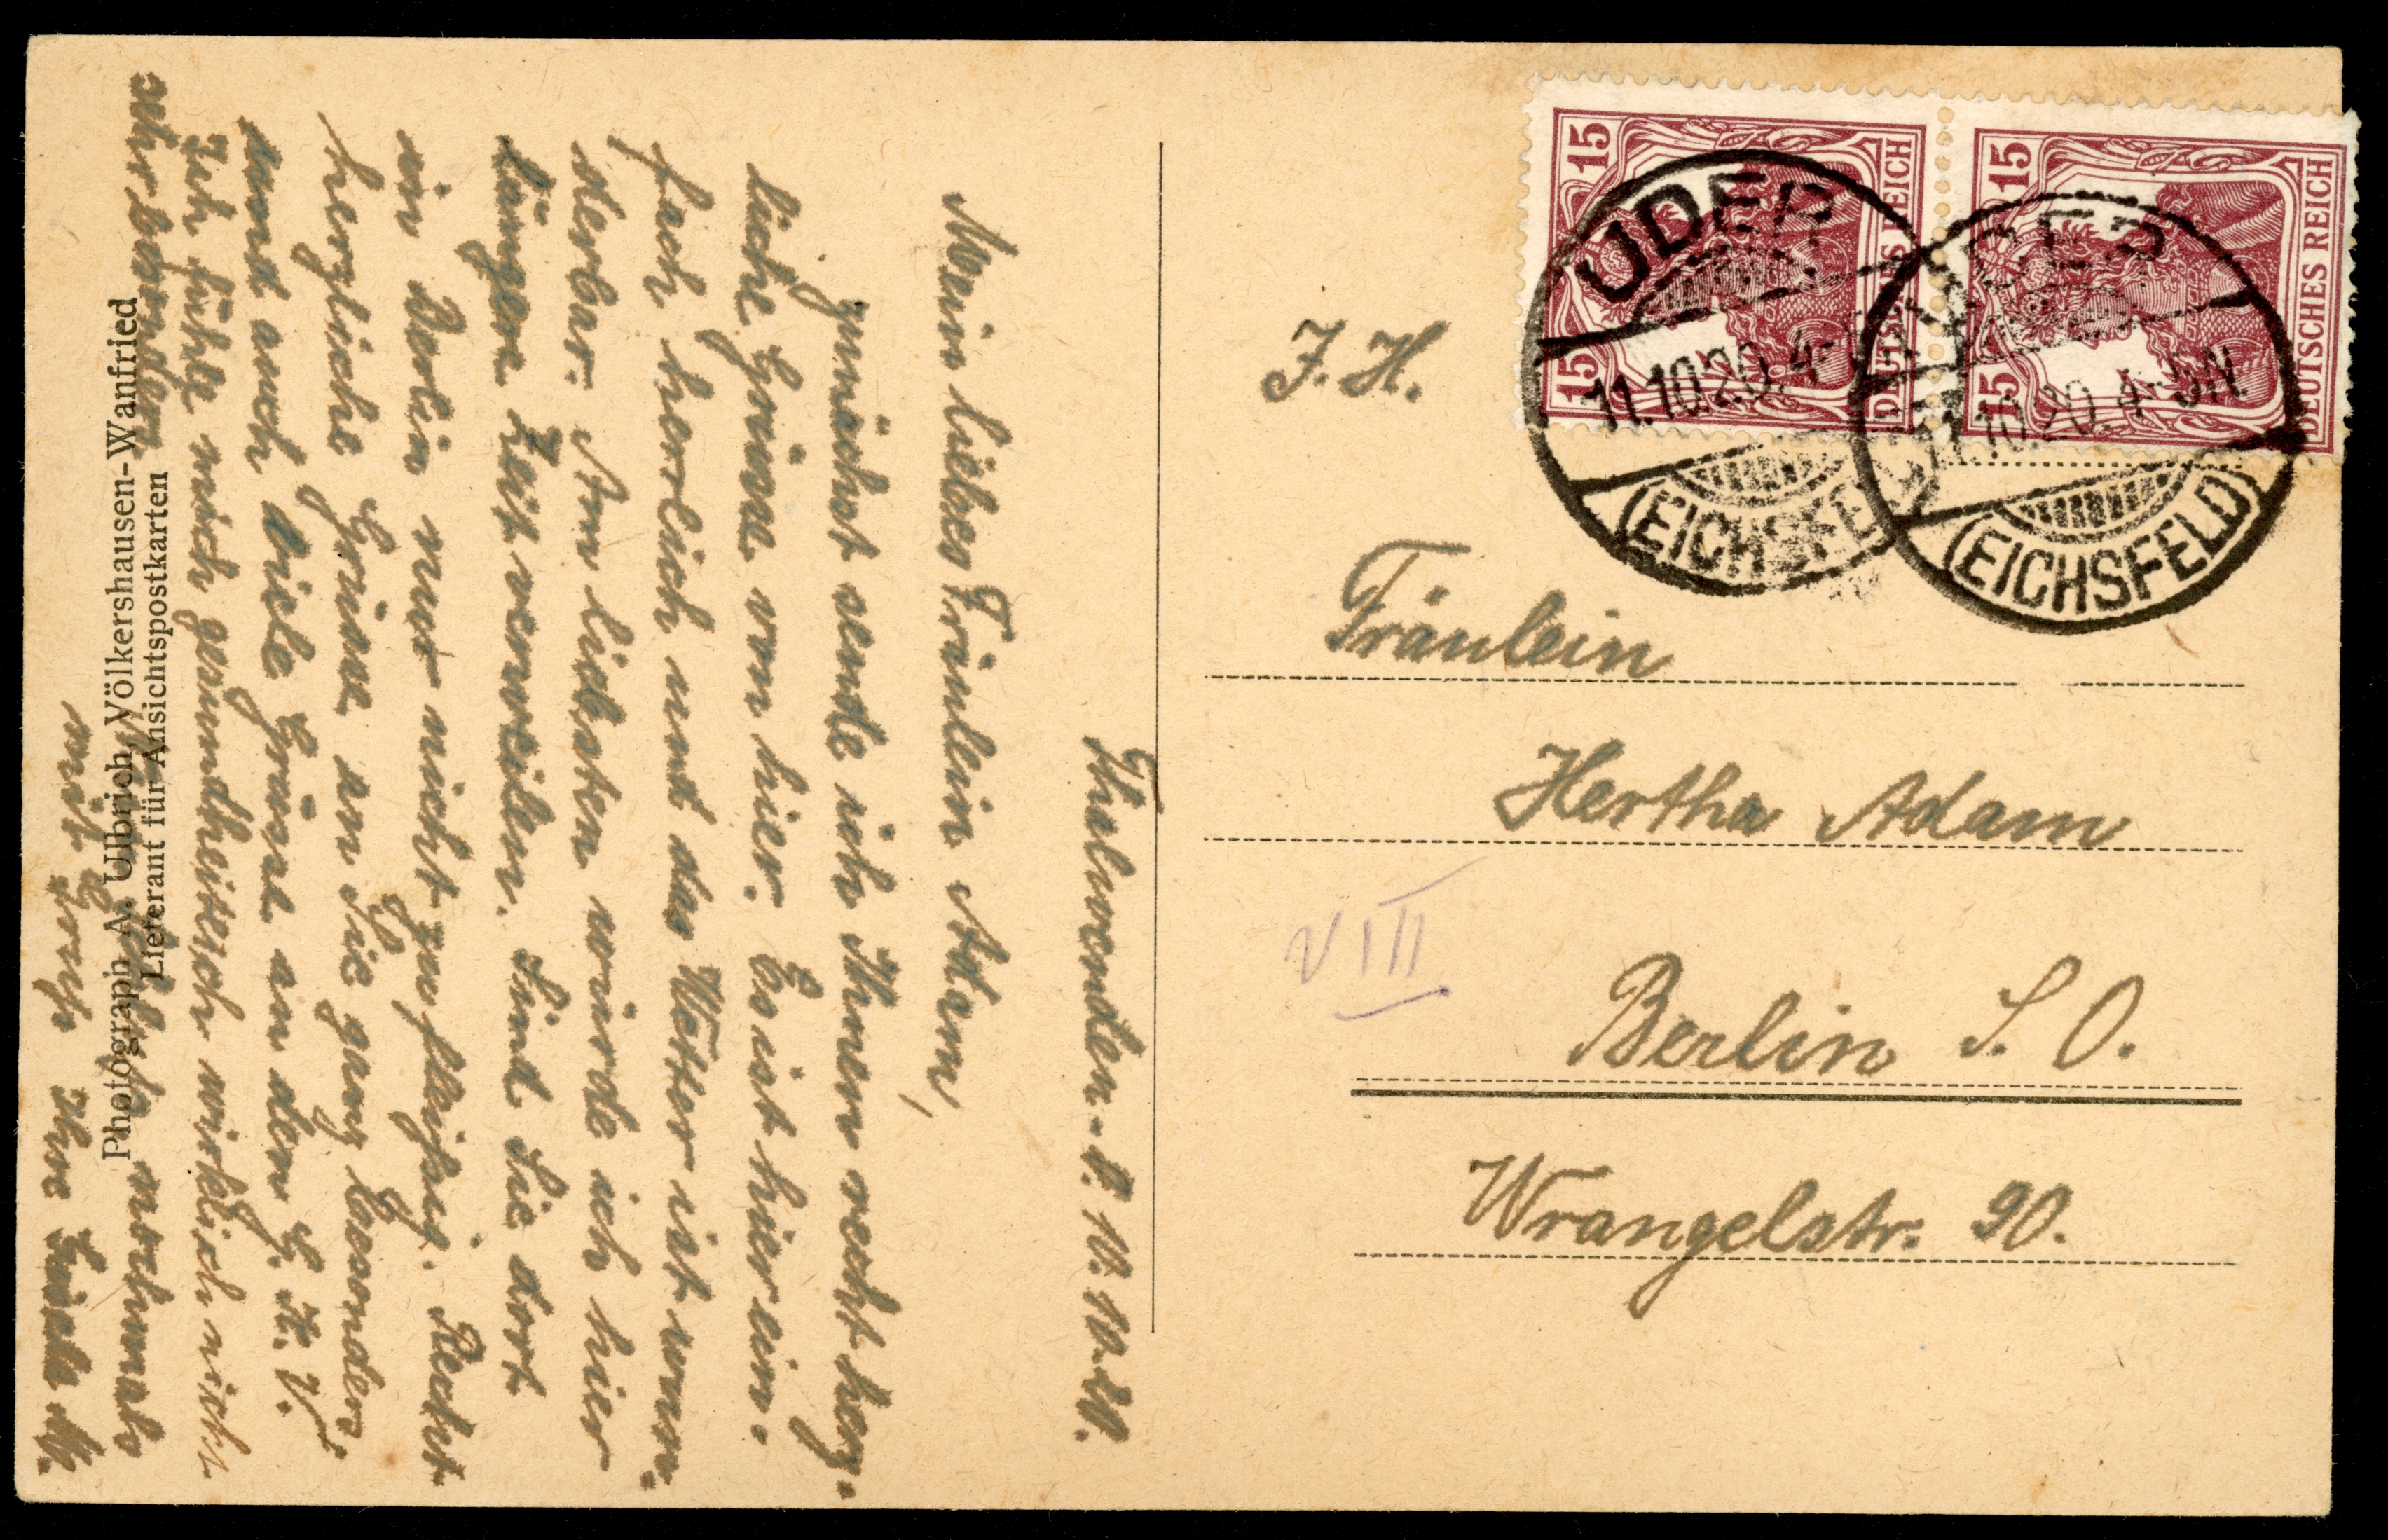 Thalwenden d. 10. 10. 20.
Mein liebes Fräulein Adam,
zunächst sende ich Ihnen recht herz-
liche Grüsse von hier. Es ist hier ein-
fach herrlich und das Wetter ist wun-
derbar. Am liebsten würde ich hier
längere Zeit verweilen. Sind Sie dort
in Berlin nur nicht zu fleißig. Recht
herzliche Grüsse an Sie ganz besonders
und auch viele Grüsse an den
Ich fühle mich gesundheitlich wirklich nicht
sehr besonders. nochmals
mit Gruß Ihre
Photograph A. Ulbrich, Völkershausen-Wanfried
Lieferant für Ansichtspostkarten
15 15
DEUTSCHES REICH
15 15
DEUTSCHES REICH
UDER
11.10.20. 4-
(EICHSFELD)
UDER
11.10.20. 4-5N
(EICHSFELD)
J. H.
Fräulein
Hertha Adam
VIII
Berlin S. O.
Wrangelstr. 90.